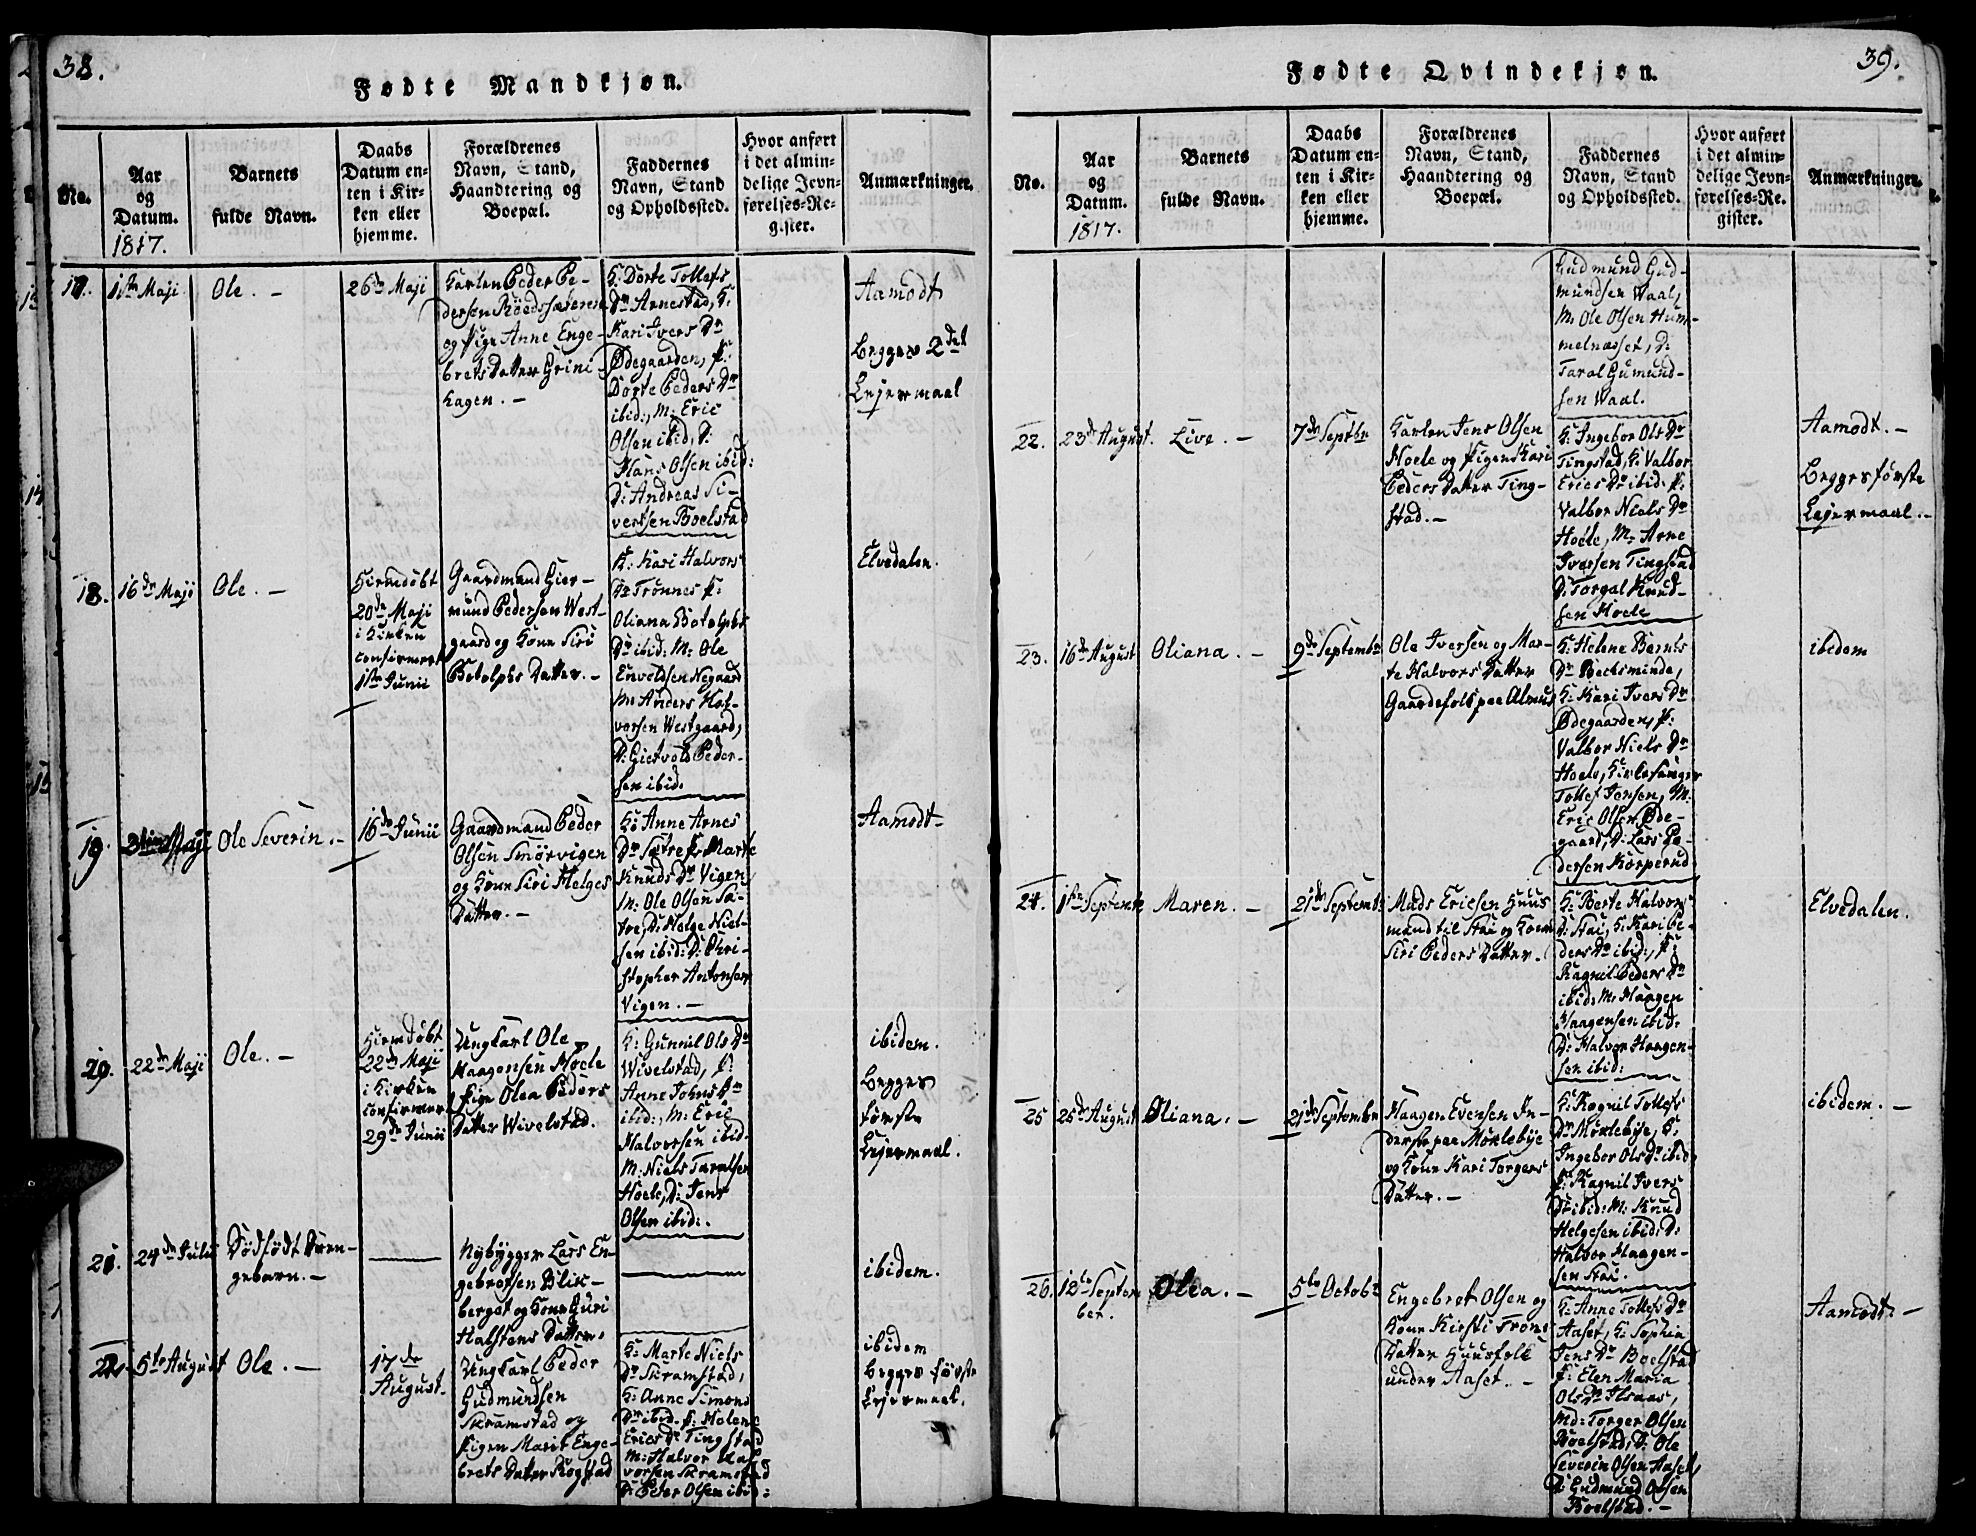 38.
Fødte Mandkjøn.
No.
Aar
og
Datum.
1817.
Barnets
fulde Navn.
Daabs
Datum en-
ten i Kir-
ken eller
hjemme.
Forældrenes
Navn, Stand,
Haandtering og
Boepæl.
Faddernes
Navn, Stand
og Opholdssted.
Hvor anført
i det almin-
delige Jevn-
førelses-Re-
gister.
Anmærkninger.
17.
1ste Maji
Ole. -
26de Maji
Karlen Peder Pe-
dersen
og Pige Anne Enge-
brets Datter Grini-
hagen. -
K: Dorte Tollefs
Dr Arnestad, K:
Kari Ivers Dr
Ødegaarden, P:
Dorte Peders Dr
ibid:, M: Eric
Olsen ibid, D:
Hans Olsen ibid:
D: Andreas Si-
vertsen Boelstad
Aamodt
Begges 2det
Lejermaal
18.
16de Maji
Ole. -
Hiemdøbt
20de Maji
i Kirken
confirmeret
1ste Junii
Gaardmand Gier-
mund Pedersen West-
gaard og Kone Siri
Botolphs Datter. -
K: Kari Halvors
Dr Trønnes P:
Oliana Botolphs
Dr ibid: M: Ole
Envoldsen Negaard
M: Anders Hal-
vorsen Westgaard,
D: Gietvold Peder-
sen ibid.
Elvedalen.
19.
Maji
Ole Severin. -
16de Junii
Gaardmand Peder
Olsen Smørvigen
og Kone Siri Helges
Datter. -
K: Anne Arnes
Dr Sætre P: Marte
Knuds Dr Vigen
M: Ole Olsen Sæ-
tre, D: Helge Niel-
sen ibid: D: Chri-
stopher Antonsen
Vigen. -
Aamodt
20.
22de Maji
Ole. -
Hiemdøbt
22de Maji
i Kirken
confirmeret
29de Junii
Ungkarl Ole
Haagensen Hoele
Pige Olea Peders
Datter Wivelstad.
K: Gunnil Ols Dr
Wivelstad, P:
Anne Johns Dr
ibid:, M: Eric
Halvorsen ibid.
M: Niels Taralsen
Hoele, D: Jens
Olsen ibid:.
ibidem.
Begges
første
Lejermaal.
21.
24de Julii
Dødfødt Dren-
gebarn. -
Nybygger Lars En-
gebretsen Blik-
berget og Kone Guri
Halstens Datter.
ibidem.
22.
5te August
Ole. -
17de
August.
Ungkarl Peder
Gudmundsen
Skramstad og
Pigen Marit Enge-
brets Datter Rogstad
K: Marte Niels
Dr Skramstad,
K: Anne Simons
Dr ibid. P: Helene
Erics Dr Tingstad
M: Halvor Hal-
vorsen Skramstad
D: Peder Olsen ibid:
ibidem
Begges første
Lejermaal.
39.
Fødte Qvindekjøn.
No.
Aar
og
Datum.
1817.
Barnets
fulde Navn.
Daabs
Datum en-
ten i Kir-
ken eller
hjemme.
Forældrenes
Navn, Stand,
Haandtering og
Boepæl.
Faddernes
Navn, Stand
og Opholdssted.
Hvor anført
i det almin-
delige Jevn-
førelses-Re-
gister.
Anmærkninger.
Gudmund Gud-
mundsen Waal,
M: Ole Olsen Hum-
melnæsset, D:
Taral Gumund-
sen Waal.
22.
23de August.
Live. -
7de Septbr
Karlen Jens Olsen
Hoele og Pigen Kari
Peders Datter Ting-
stad. -
K: Ingebor Ols Dr
Tingstad, K: Valbor
Erics Dr ibid: P:
Valbor Niels Dr
Hoele, M: Arne
Iversen Tingstad
D: Torgal Knud-
sen Hoele
Aamodt. -
Begges første
Lejermaal. -
23.
16de August
Oliana. -
9de Septembr
Ole Iversen og Mar-
te Halvors Datter
Gaardefolk paa Alme
K: Helene Bernts
Dr Bechsminde,
K: Kari Ivers Dr
Ødegaarden, P:
Valbor Niels Dr
Hoele, Kirkesanger
Tollef Jensen, M:
Eric Olsen Øde-
gaard, D: Lars Pe-
dersen Korperud
ibidem
24.
1ste Septembr
Maren. -
21de Septembr
Mads Ericsen Huus
mand til Stai og Kone
Siri Peders Datter. -
K: Berte Halvors
D: Stai, K: Kari Pe-
ders Dr ibid:, P:
Ragnil Peders Dr
ibid: M: Haagen
Haagensen ibid:
D: Halvor Haagen-
sen ibid:
Elvedalen.
25
25de August
Oliana. -
21de Septembr
Haagen Evensen In-
derst paa Møklebye
og Kone Kari Torgers
Datter. -
K: Ragnil Tollefs
Dr Møklebye, K:
Ingebor Ols Dr ibid:
P: Ragnil Ivers
Dr ibid: M: Knud
Helgesen ibid: D:
Halvor Haagen-
sen Stai.
ibidem. -
26.
12te Septem
ber.
Olea. -
5te Octobr
Engebret Olsen og
Kone Kirsti Trons
Datter Huusfolk
under Aaset. -
K: Anne Tollefs Dr
Aaset, K: Sophia
Jens Dr Boelstad
P: Elen Maria
Ols Dr
Md: Torger Olsen
Boelstad, D: Ole
Severin Olsen Aaset,
D: Gudmund Olsen
Boelstad. -
Aamodt. -